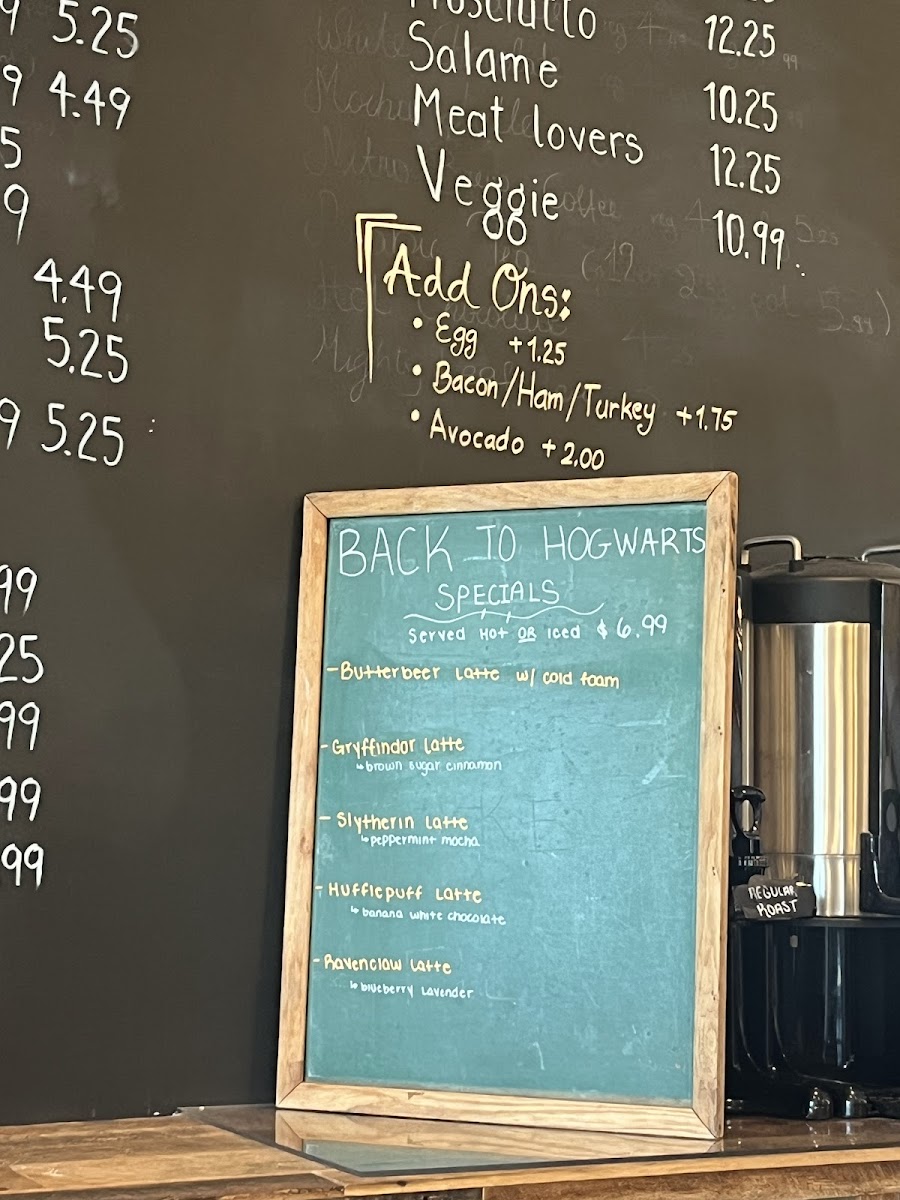 5.25
9 4.49
5
9
4.49
5.25
9 5.25
99
25
99
99
99
12.25
Salame 10.25
Meat lovers 12.25
Veggie 10.99
Add Ons:
• Egg +1.25
• Bacon/Ham/Turkey +1.75
• Avocado +2.00
BACK TO HOGWARTS
SPECIALS
Served HOT OR Iced $6.99
- Butterbeer Latte w/ cold foam
- Gryffindor Latte
↳ brown sugar cinnamon
- Slytherin Latte
↳ peppermint mocha
- Hufflepuff Latte
↳ banana white chocolate
- Ravenclaw Latte
↳ blueberry Lavender
REGULAR
ROAST